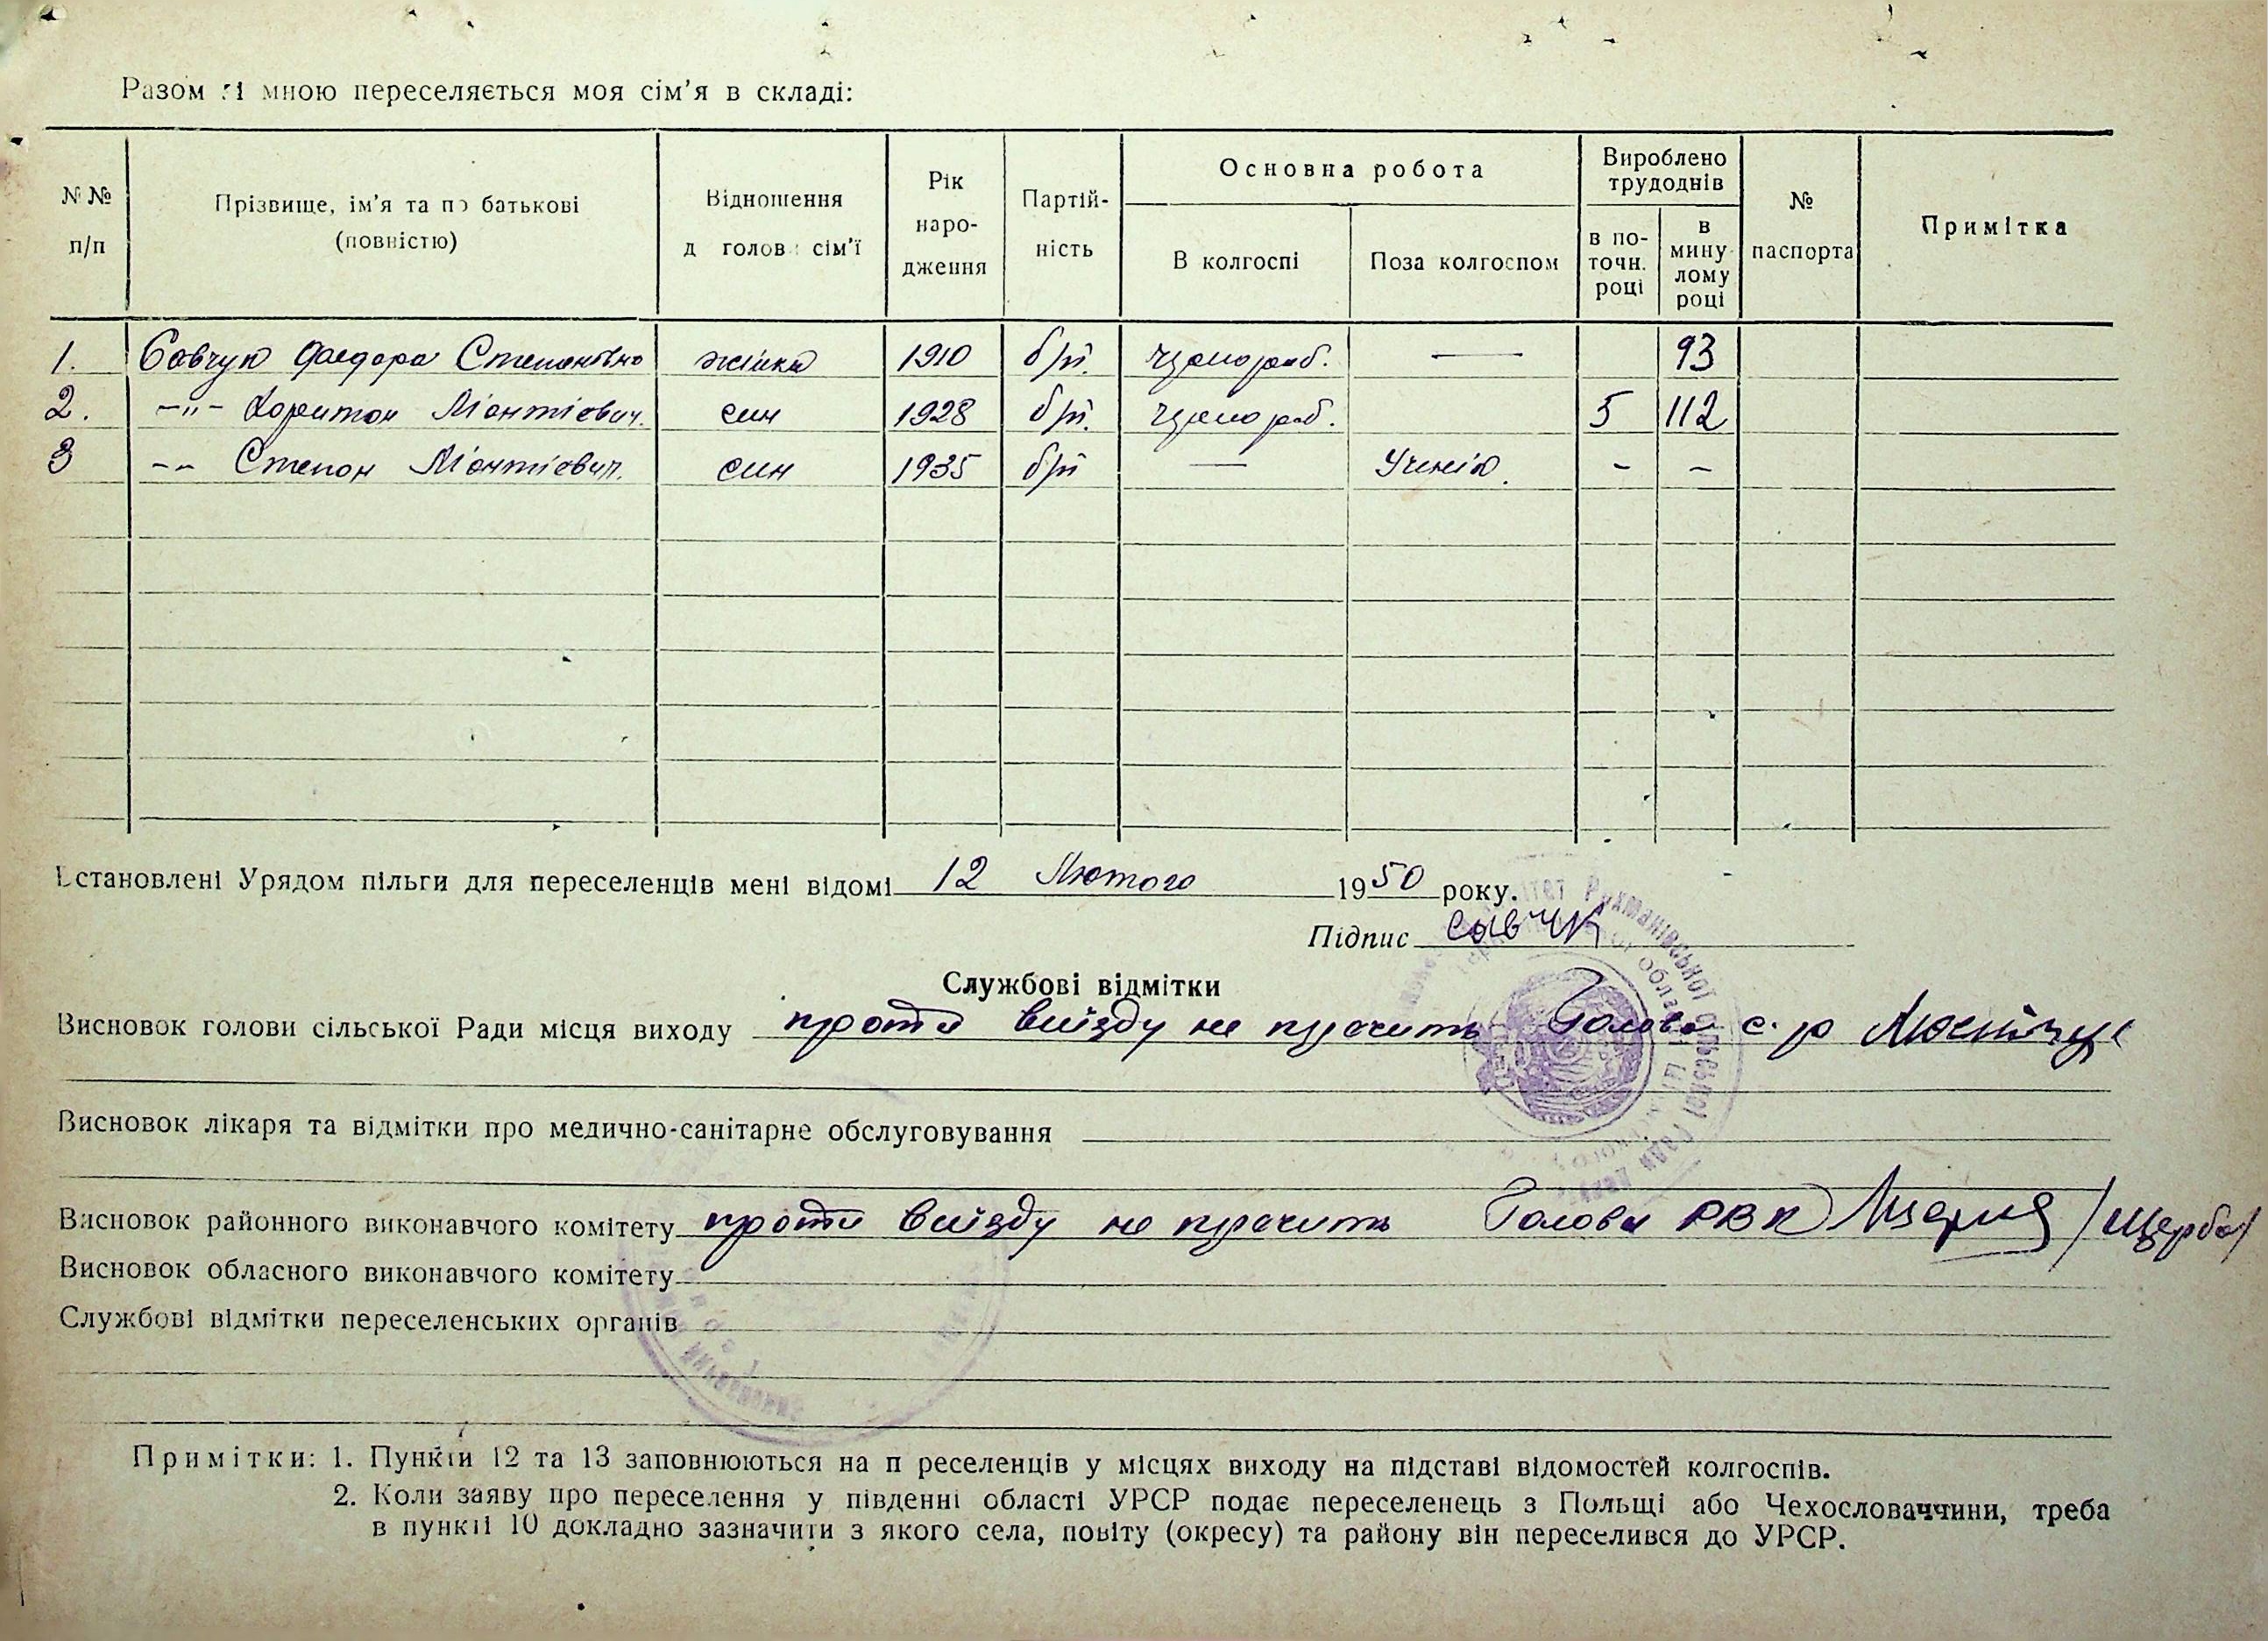 Разом зі мною переселяється моя сім'я в складі:
№№ п/п
Прізвище, ім'я та по батькові (повністю)
Відношення д голов сім'ї
Рік народження
Партійність
Основна робота
В колгоспі
Поза колгоспом
Вироблено трудоднів
в поточн. році
в минулому році
№ паспорта
Примітка
1. Савчук Федора Степанівна жінка 1910 б/п. чорнораб. — 93
2. -"- Харитон Мантієвич. син 1928 б/п. чорнораб. 5 112
3 -"- Степан Мантієвич. син 1935 б/п — Учень. - -
Встановлені Урядом пільги для переселенців мені відомі 12 Лютого 1950 року.
Підпис Савчк
Службові відмітки
Висновок голови сільської Ради місця виходу проти виїзду не прочить Голова с. р
Висновок лікаря та відмітки про медично-санітарне обслуговування
Висновок районного виконавчого комітету проти виїзду не прочить Голова РВК /Щерба/
Висновок обласного виконавчого комітету
Службові відмітки переселенських органів
Примітки: 1. Пункти 12 та 13 заповнюються на п реселенців у місцях виходу на підставі відомостей колгоспів.
2. Коли заяву про переселення у південні області УРСР подає переселенець з Польщі або Чехословаччини, треба
в пункті 10 докладно зазначити з якого села, повіту (окресу) та району він переселився до УРСР.